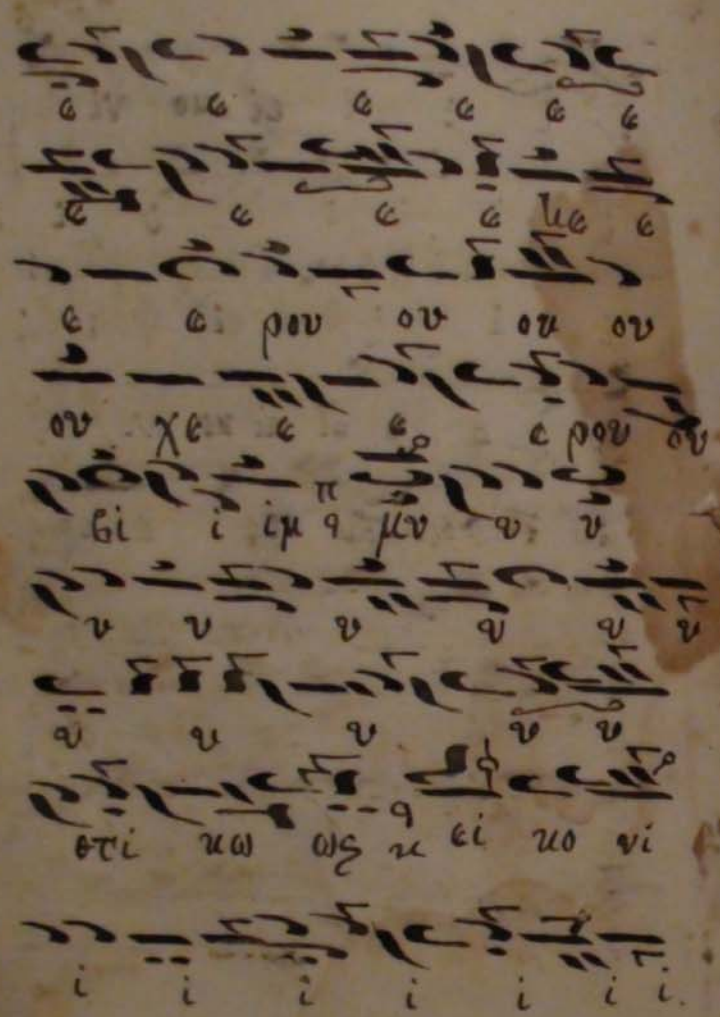 ε ε ε ε ε ε
ε ε ε ε χε ε
ε ε ρου ου ου ου
ου χε ε ε ε ρου ου
βι ι ιμ μυ υ υ
υ υ υ υ υ υ
υ υ υ υ υ
στι κω ως κ ει κο νι
ι ι ι ι ι ι ι